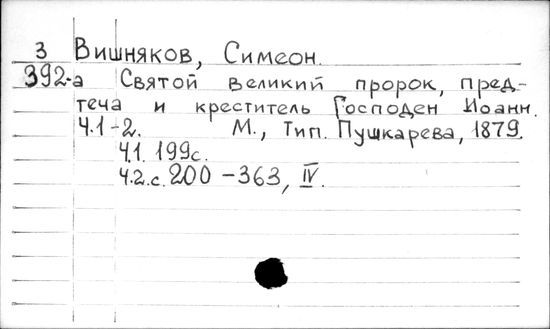 З Вишняков, Симеон.
392-а Святой великий пророк, пред-
теча и креститель Господен Иоанн.
Ч.1-2. М., Тип. Пушкарева, 1879.
Ч.1. 199с.
Ч.2. с. 200-363, IV.